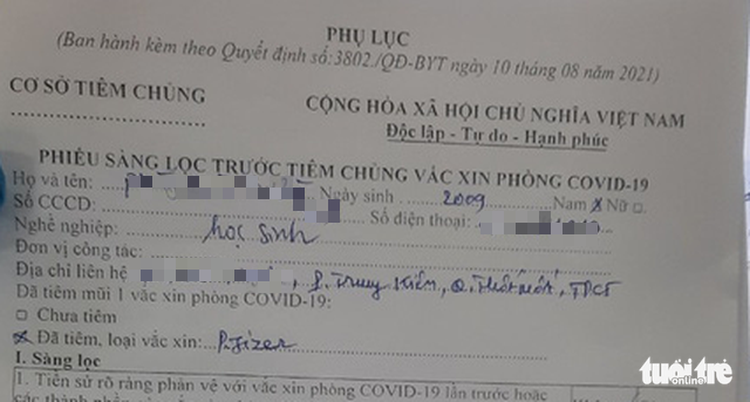 PHỤ LỤC
(Ban hành kèm theo Quyết định số:3802./QĐ-BYT ngày 10 tháng 08 năm 2021)
CƠ SỞ TIÊM CHỦNG
CỘNG HÒA XÃ HỘI CHỦ NGHĨA VIỆT NAM
Độc lập - Tự do - Hạnh phúc
PHIẾU SÀNG LỌC TRƯỚC TIÊM CHỦNG VẮC XIN PHÒNG COVID-19
Họ và tên: Ngày sinh 2009 Nam x Nữ □.
Số CCCD: Số điện thoại:
Nghề nghiệp: học sinh
Đơn vị công tác:
Địa chỉ liên hệ , P. Trung Kiên, Q. Thốt nốt, TPCT
Đã tiêm mũi 1 vắc xin phòng COVID-19:
□ Chưa tiêm
x Đã tiêm, loại vắc xin: Pfizer
I. Sàng lọc
1. Tiền sử rõ ràng phản vệ với vắc xin phòng COVID-19 lần trước hoặc
các thành phần
tuổi trẻ
online